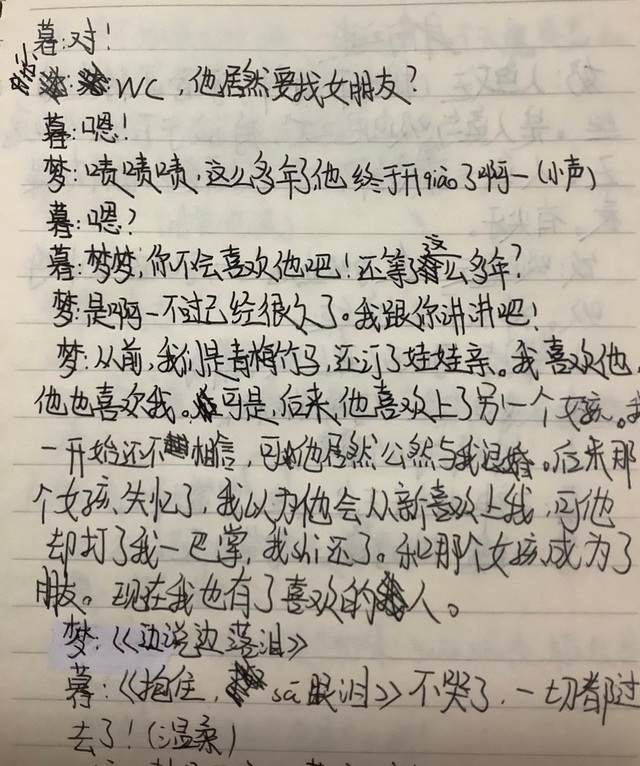 暮:对!
梦:WC,他居然要找女朋友?
暮:嗯!
梦:啧啧啧,这么多年了他终于开qiào了啊一(小声)
暮:嗯?
暮:梦梦,你不会喜欢他吧!还等了这么多年?
梦:是啊一不过已经很久了。我跟你讲讲吧!
梦:从前,我们是青梅竹马,还订了娃娃亲。我喜欢他,
他也喜欢我。可是,后来,他喜欢上了另一个女孩。我
一开始还不相信,可他居然公然与我退婚。后来那
个女孩失忆了,我以为他会从新喜欢上我,可他
却打了我一巴掌,我shi还了。和那个女孩成为了
朋友。现在我也有了喜欢的人。
梦:《边说边落泪》
暮:《抱住,sā眼泪》不哭了,一切都过
去了!(温柔)